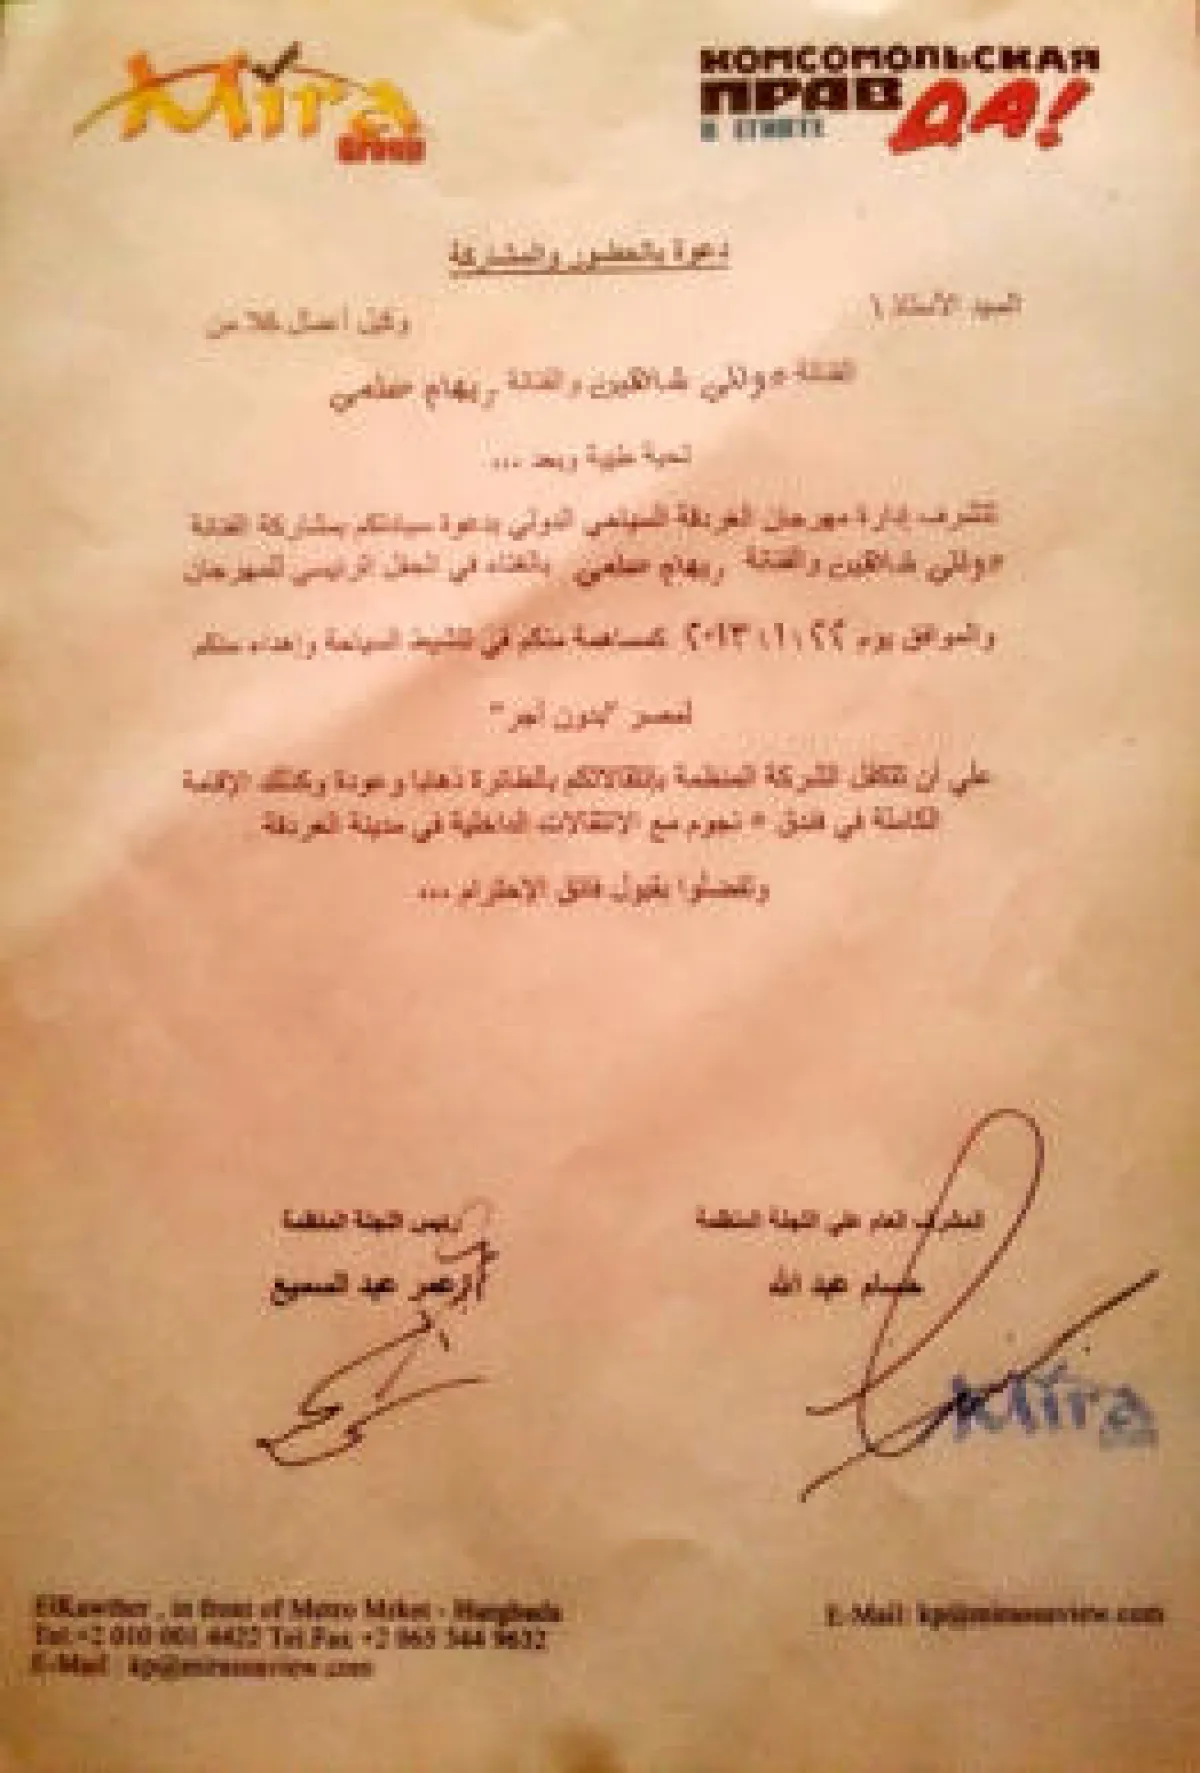 Mira
GROUP
КОМСОМОЛЬСКАЯ
ПРАВДА!
В ЕГИПТЕ
دعوة بالحضور والمشاركة
السيد الأستاذ \
وكيل أعمال كلا من
الفنانة دوللي شاهين والفنانة ريهام حلمي
تحية طيبة وبعد ...
تتشرف إدارة مهرجان الغردقة السياحي الدولي بدعوة سيادتكم بمشاركة الفنانة
دوللي شاهين والفنانة ريهام حلمي بالغناء في الحفل الرئيسي للمهرجان
والموافق يوم كمساهمة منكم في تنشيط السياحة وإهداء منكم
لمصر "بدون أجر"
علي أن تتكفل الشركة المنظمة بإنتقالاتكم بالطائرة ذهابا وعودة وكذلك الإقامة
الكاملة في فندق ٥ نجوم مع الانتقالات الداخلية في مدينة الغردقة
وتفضلوا بقبول فائق الإحترام ...
المشرف العام علي اللجنة المنظمة
رئيس اللجنة المنظمة
حسام عبد الله
عمر عبد السميع
Mira
ElKawther , in front of Metro Mrket - Hurghada
Tel:+2 010 001 4422 Tel.Fax +2 065 344 9632
E-Mail : kp@mirasunview.com
E-Mail: kp@mirasunview.com